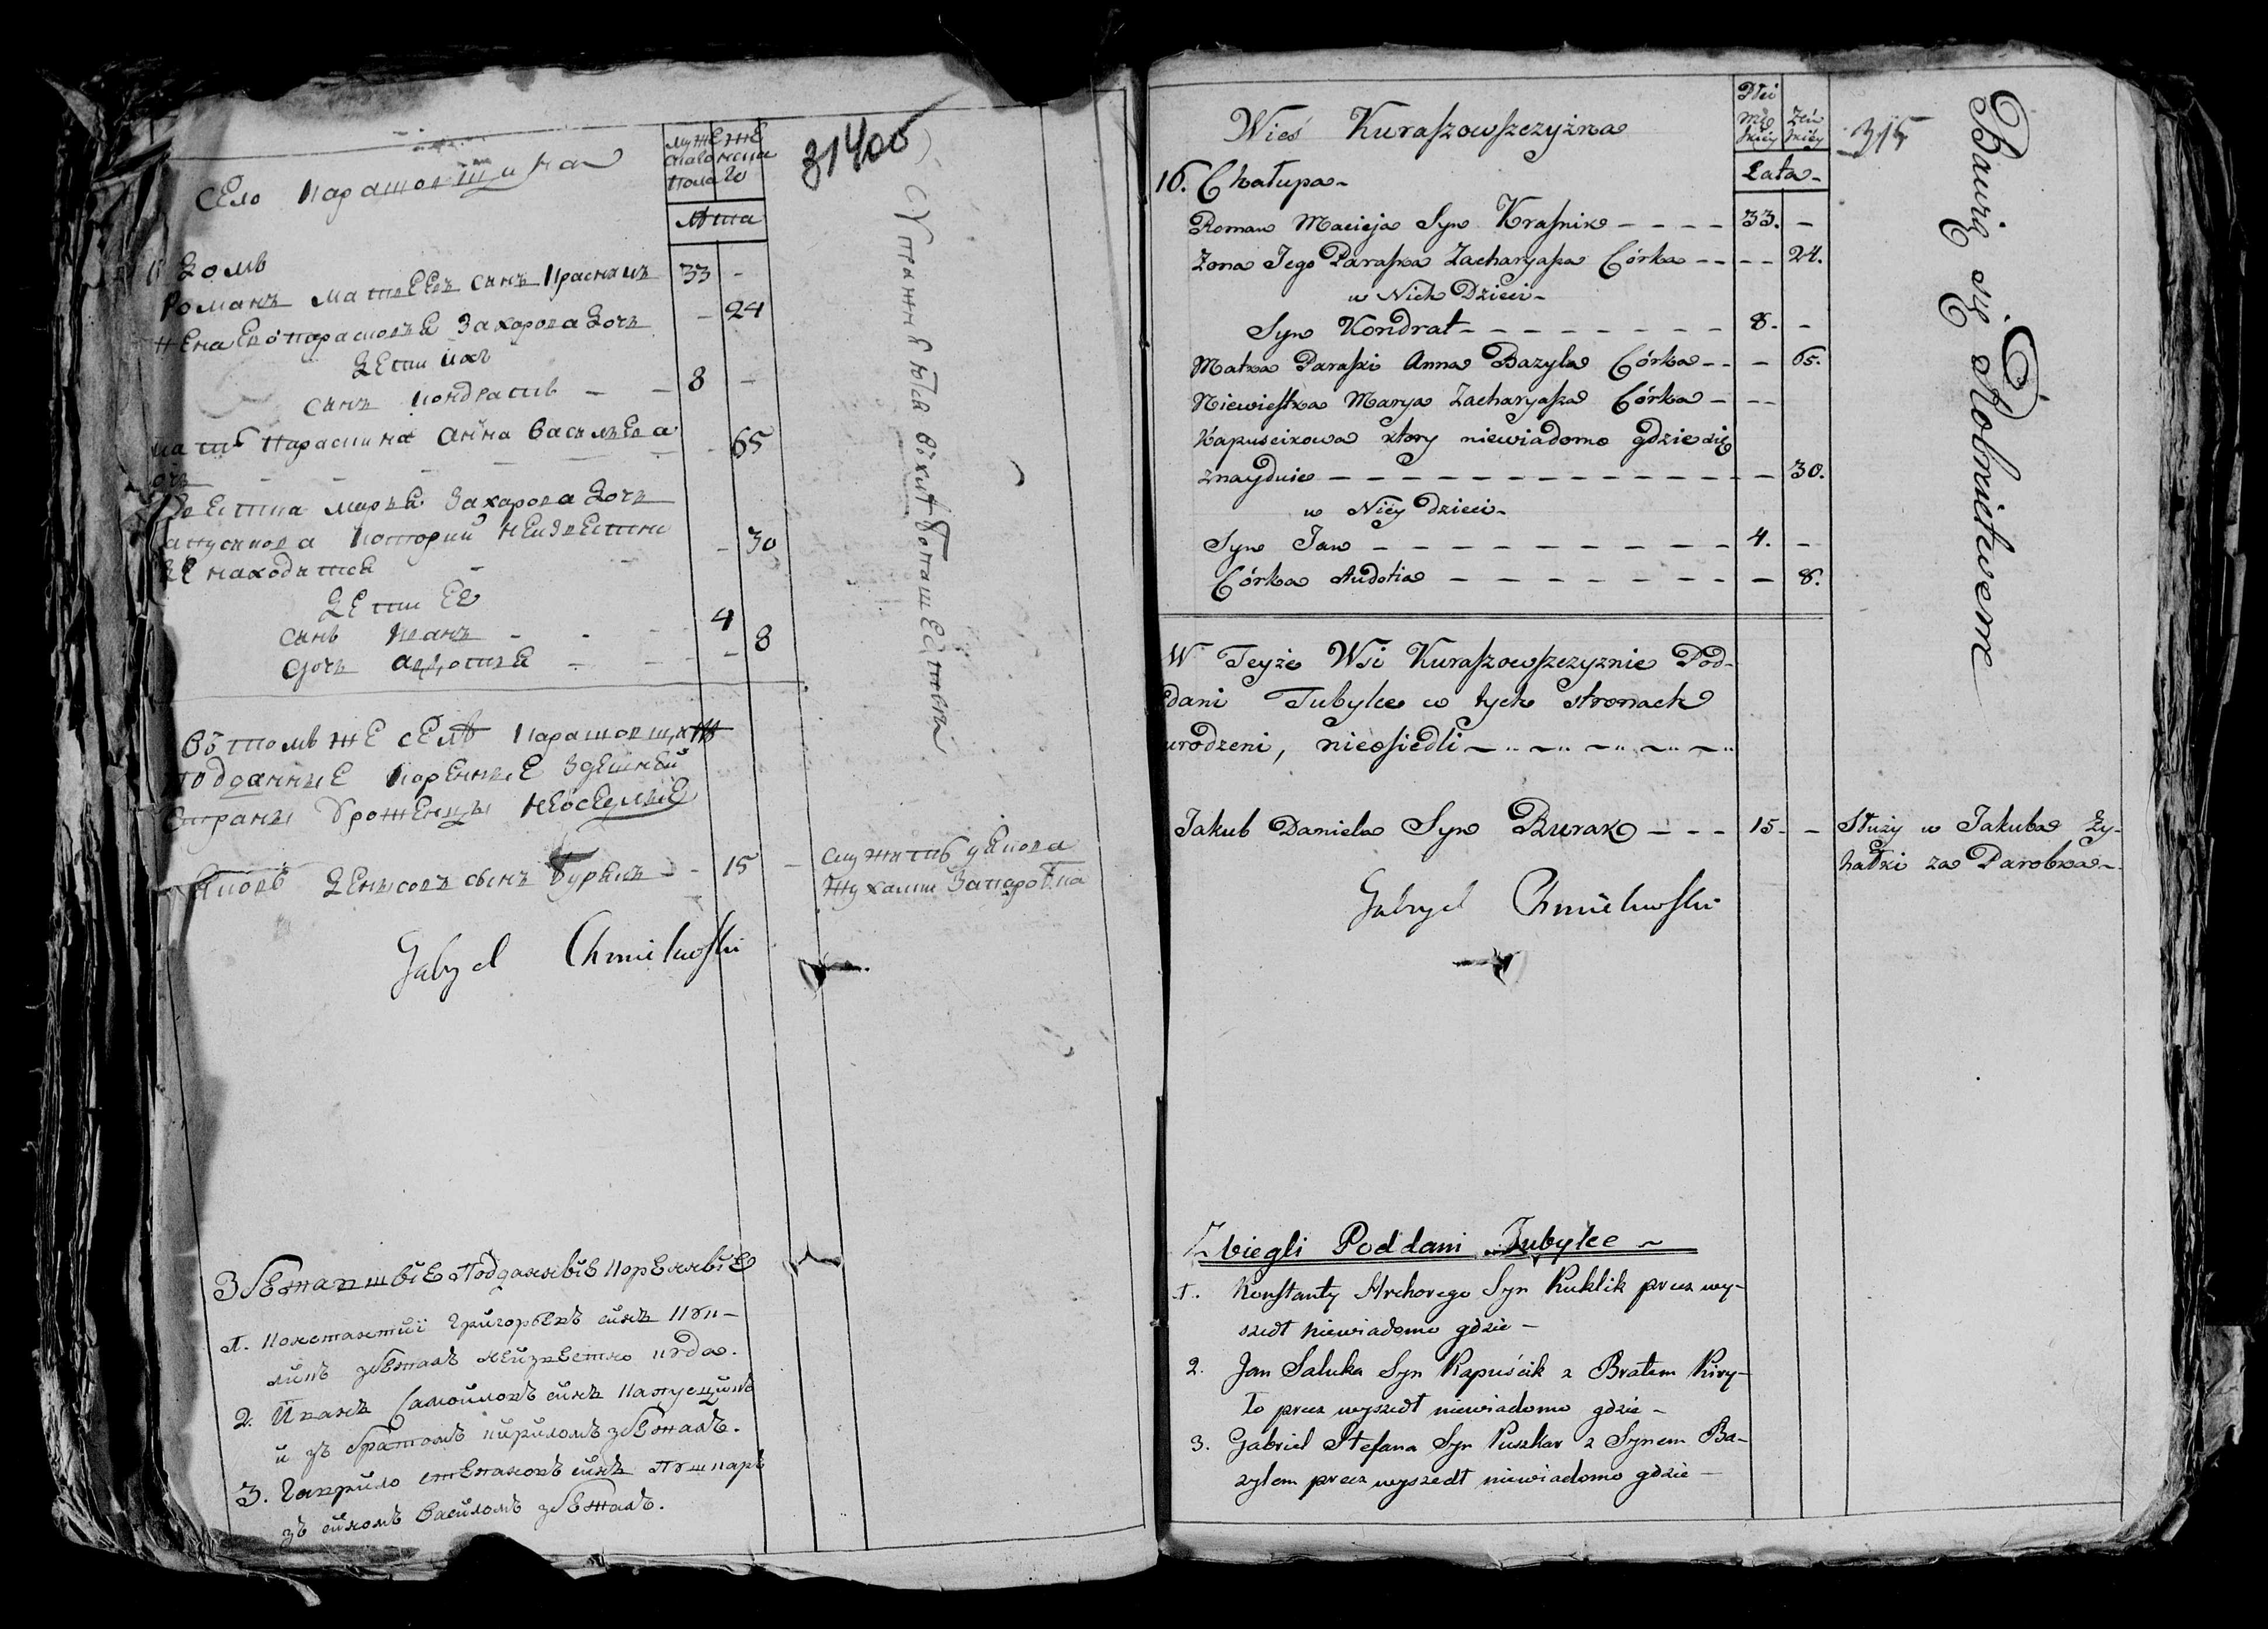 село Карашовщина
мужеска
женска
полаго
лѣта
31400
домъ
Романъ Матвеевъ сынъ Красникъ 33 -
жена его парасковея Захарова дочь - 24
дети ихъ
сынъ Кондратъ - - 8 -
мать Параскина анна Васильева - 65
дочь
невестка маръя Захарова дочь
Капускова которий неизвестно
где находится - - - 30
дети ее
сынъ Иванъ - - - 4
дочь авдотия - - - - 8
Въ томъ же селѣ Карашовщизнѣ
подданные коренные здешней
страны урожены неоседлые
Яковъ Денисовъ сынъ Буракъ - - 15 -
служитъ у Якова
Жухалки за паробка
Gabryel Chmielewski
Збежавшые подданные коренные
1. Константий Григорьевъ синъ Кук-
ликъ збежалъ неизвестно куда.
2. Иванъ Самойловъ синъ Капусцикъ
и зъ братомъ кириломъ збежалъ.
3. Гаврило степановъ синъ пушкаръ
зъ синомъ Василомъ збежалъ.
Упражняются въ хлебопашестве
Wieś Kuraszowszczyzna
Płci
Męskiey
Żeńskiey
Lata
315
16. Chałupa
Roman Macieja Syn Kraśnik - - - - 33. -
Żona Jego Paraska Zacharyaſza Córka - - - - 24.
u Nich Dzieci -
Syn Kondrat - - - - - - - - 8. -
Matka Paraski Anna Bazyla Córka - - - 65.
Niewiestka Marya Zacharyaſza Córka - - -
Kapuscikowa ktory niewiadomo gdzie się
znayduie - - - - - - - - - - - - - 30.
u Niey dzieci -
Syn Jan - - - - - - - - - - 4. -
Córka Audotia - - - - - - - - - 8.
W Teyże Wsi Kuraszowszczyznie Pod-
dani Tubylce w tych stronach
urodzeni, nieosiedli
Jakub Daniela Syn Burak - - - 15 - -
Służy u Jakuba Ży-
hałki za Parobka -
Gabryel Chmielewski
Bawią się Rolnictwem
Zbiegli Poddani Tubylce -
1. Konstanty Hrehorego Syn Kuklik precz wy-
szedł niewiadomo gdzie -
2. Jan Saluka Syn Kapuścik z Bratem Kiry-
ło precz wyszedł niewiadomo gdzie -
3. Gabriel Stefana Syn Puszkar z Synem Ba-
zylem precz wyszedł niewiadomo gdzie -